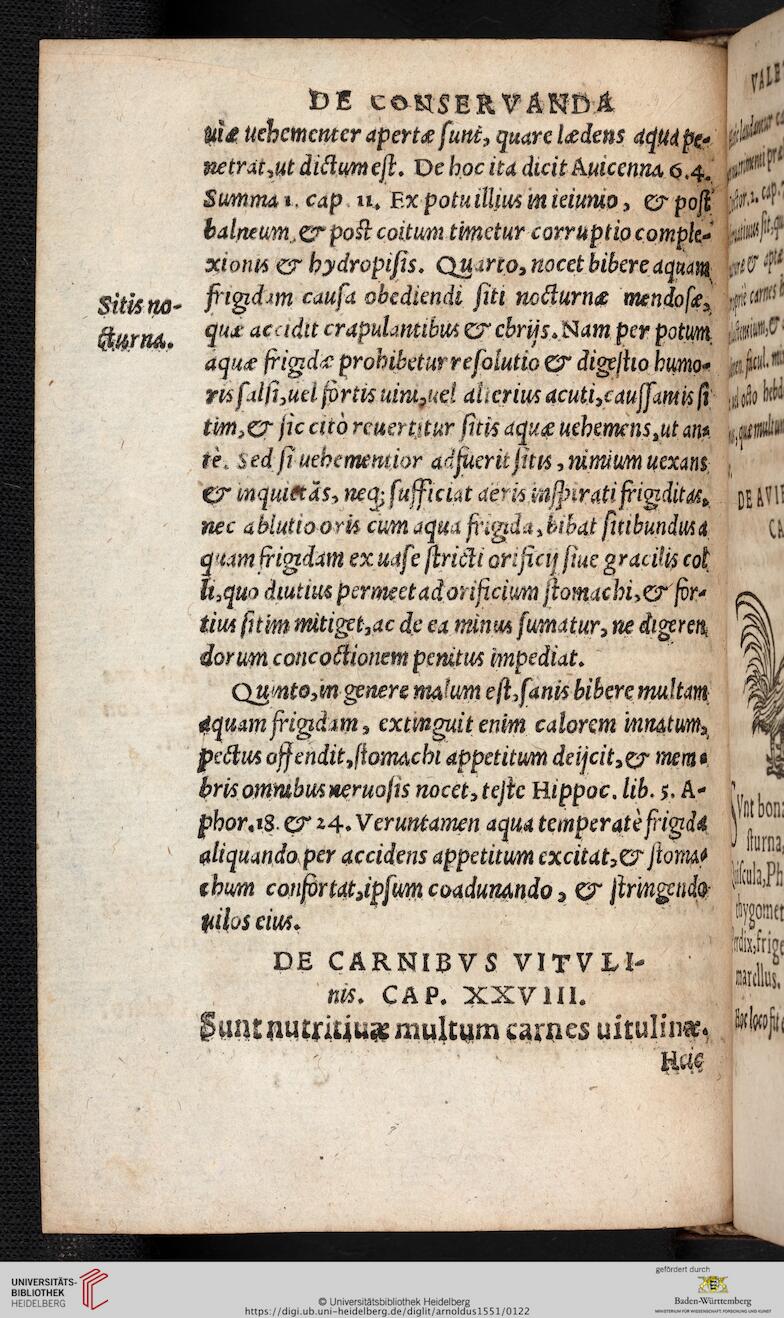 DE CONSERVANDA
uiæ uehementer apertæ sunt, quare lædens aqua pe-
netrat, ut dictum est. De hoc ita dicit Auicenna 6.4.
Summa 1. cap. 11. Ex potu illius in ieiunio, & post
balneum, & post coitum timetur corruptio comple-
xionis & hydropisis. Quarto, nocet bibere aquam
Sitis no-
cturna.
frigidam causa obediendi siti nocturnæ mendosæ,
quæ accidit crapulantibus & ebrijs. Nam per potum
aquæ frigidæ prohibetur resolutio & digestio humo-
ris salsi, uel fortis uini, uel alterius acuti, caussamis si
tim, & sic citò reuertitur sitis aquæ uehemens, ut an-
tè. Sed si uehementior adfuerit sitis, nimium uexans
& inquietãs, neq; sufficiat aeris inspirati frigiditas,
nec ablutio oris cum aqua frigida, bibat sitibundus a
quam frigidam ex uase stricti orificij siue gracilis col
li, quo diutius permeet ad orificium stomachi, & for-
tius sitim mitiget, ac de ea minus sumatur, ne digeren
dorum concoctionem penitus impediat.
Quinto, in genere malum est, sanis bibere multam
aquam frigidam, extinguit enim calorem innatum,
pectus offendit, stomachi appetitum deijcit, & mem-
bris omnibus neruosis nocet, teste Hippoc. lib. 5. A-
phor. 18. & 24. Veruntamen aqua temperatè frigida
aliquando per accidens appetitum excitat, & stoma-
chum confortat, ipsum coadunando, & stringendo
uilos eius.
DE CARNIBVS VITVLI-
nis. CAP. XXVIII.
Sunt nutritiuæ multum carnes uitulinæ.
Hæc
VALE
DE AVI
CA
Synt bon
sturna,
Ph
thygomet
frige
marellus.
Hoc loco fit
UNIVERSITÄTS-
BIBLIOTHEK
HEIDELBERG
© Universitätsbibliothek Heidelberg
https://digi.ub.uni-heidelberg.de/diglit/arnoldus1551/0122
gefördert durch
Baden-Württemberg
MINISTERIUM FÜR WISSENSCHAFT, FORSCHUNG UND KUNST